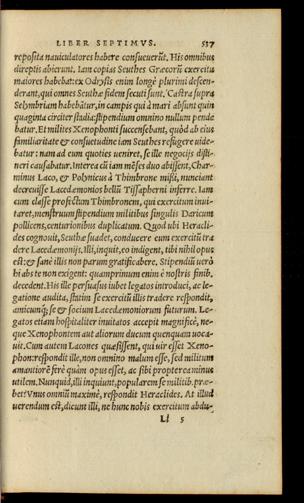 LIBER SEPTIMVS. 537
reposita nauiculatores habere consueuerūt. His omnibus
direptis abierunt. Iam copias Seuthes Græcorū exercitu
maiores habebat: ex Odrysis enim longè plurimi descen-
derant, qui omnes Seuthæ fidem secuti sunt. Castra supra
Selymbriam habebātur, in campis quà mari absunt quin
quaginta circiter stadia: stipendium omnino nullum penda
batur. Et milites Xenophonti succensebant, quòd ab eius
familiaritate & consuetudine iam Seuthes refugere uide-
batur: nam ad eum quoties ueniret, se ille negocijs disti-
neri causabatur. Interea cū iam mēses duo abissent, Char-
minus Laco, & Polynicus à Thimbrone missi, nunciant
decreuisse Lacedæmonios bellū Tissapherni inferre. Iam
cum classe profectum Thimbronem, qui exercitum inui-
taret, menstruum stipendium militibus singulis Daricum
pollicens, centurionibus duplicatum. Quod ubi Heracli-
des cognouit, Seuthæ suadet, conducere eum exercitū tra
dere Lacedæmonijs. Illi, inquit, eo indigent, tibi nihil opus
est: & sanè illis non parum gratificabere. Stipendiū uerò
hi abs te non exigent: quamprimum enim è nostris finib.
decedent. His ille persuasus iubet legatos introduci, ac le-
gatione audita, statim se exercitū illis tradere respondit,
amicumq́; se & socium Lacedæmoniorum futurum. Le-
gatos etiam hospitaliter inuitatos accepit magnificè, ne-
que Xenophontem aut aliorum ducum quenquam uoca-
uit. Cum autem Lacones quæsissent, qui uir esset Xeno-
phon: respondit ille, non omnino malum esse, sed militum
amantiorē ferè quàm opus esset, ac sibi propterea minus
utilem. Nunquid, illi inquiunt, popularem se militib. præ-
bet? Vnus omniū maximè, respōdit Heraclides. At illud
uerendum est, dicunt illi, ne hunc nobis exercitum abdu-
Ll 5